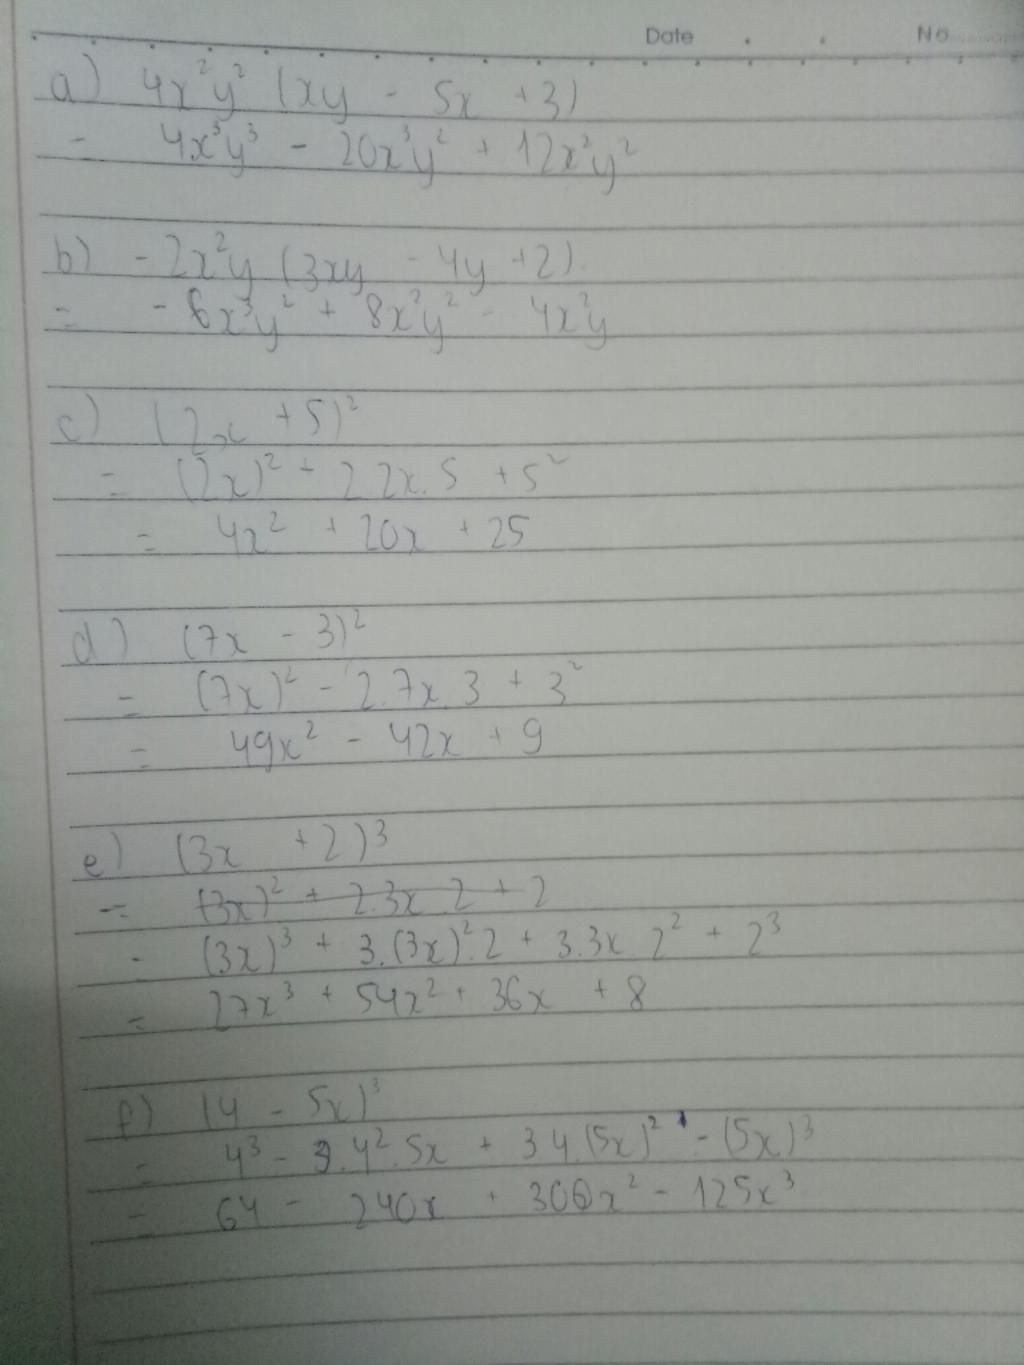 Date . . No
a) 4x²y² (xy - 5x + 3)
= 4x³y³ - 20x³y² + 12x²y²
b) - 2x²y (3xy - 4y + 2)
= - 6x³y² + 8x²y² - 4x²y
c) (2x + 5)²
= (2x)² + 2.2x.5 + 5²
= 4x² + 20x + 25
d) (7x - 3)²
= (7x)² - 2.7x.3 + 3²
= 49x² - 42x + 9
e) (3x + 2)³
= (3x)² + 2.3x.2 + 2
= (3x)³ + 3.(3x)².2 + 3.3x.2² + 2³
= 27x³ + 54x² + 36x + 8
f) (4 - 5x)³
= 4³ - 3.4².5x + 3.4.(5x)² - (5x)³
= 64 - 240x + 300x² - 125x³